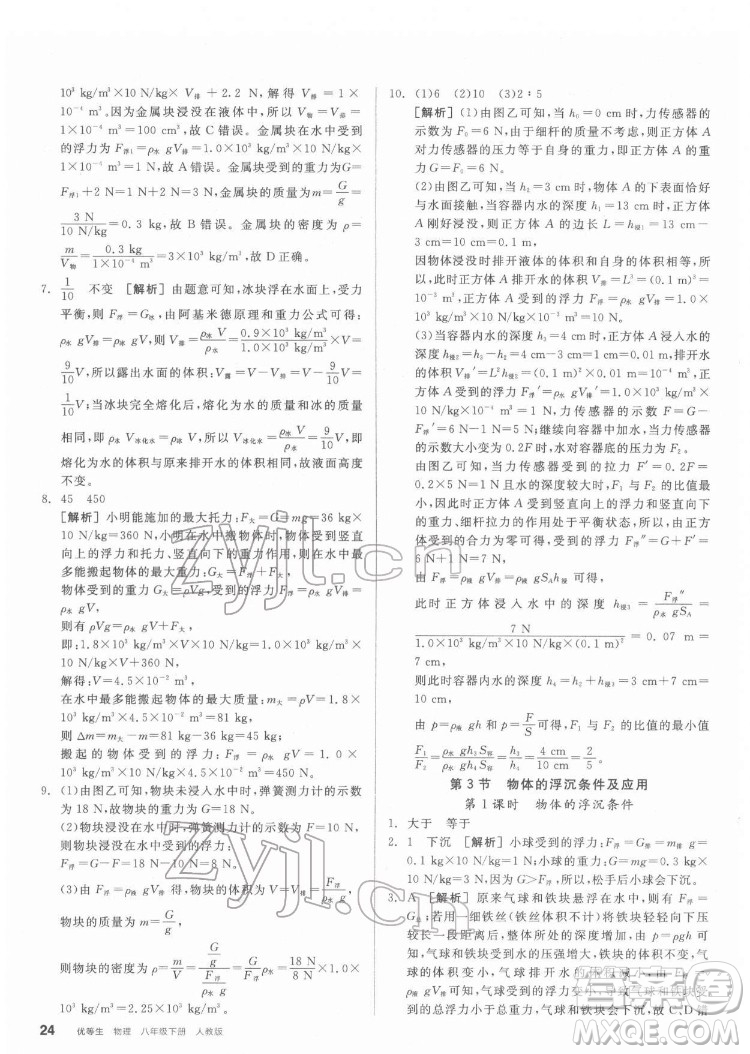 10³ kg/m³×10 N/kg×V排 + 2.2 N，解得 V = 1×
10⁻⁴ m³=100 cm³，故 C 错误。金属块在水中受到
的浮力为 F浮1=ρ水 gV排=1.0×10³ kg/m³×10 N/kg×
1×10⁻⁴ m³=1 N，金属块受到的重力为 G=
F浮1+2 N=1 N+2 N=3 N。金属块的质量为 m=G/g=
3 N/10 N/kg=0.3 kg，故 B 错误。金属块的密度为 ρ=
m/V物=0.3 kg/1×10⁻⁴ m³=3×10³ kg/m³，故 D 正确。
7. 1/10 不变 [解析] 由题意可知，冰块浮在水面上，受力
平衡，则 F浮=G冰，由阿基米德原理和重力公式可得：
ρ水 gV排=ρ冰 gV，则 V排=ρ冰V/ρ水=0.9×10³ kg/m³/1.0×10³ kg/m³×V=
9/10 V，所以露出水面的体积：V露=V－V排=V－
9/10 V=1/10 V；当冰块完全熔化后，熔化为水的质量和冰的质量
相同，即 ρ水 V冰化水=ρ冰 V，则 V冰化水=ρ冰V/ρ水=9/10 V，即
熔化为水的体积与原来排开水的体积相同，液面高度
不变。
8. 45 450
[解析] 小明能施加的最大托力：F大=G=mg=36 kg
×10 N/kg=360 N，在水中搬起物体时，物体受到竖直
向上的浮力和托力、竖直向下的重力作用，则在水中最
多能搬起物体的重力：G大=F浮+F大，
物体受到的重力：G大=ρVg，受到的浮力：F浮=
ρ水 gV，
则有：ρVg=ρ水 gV+F大，
即：1.8×10³ kg/m³×V×10 N/kg=1.0×10³ kg/m³×
10 N/kg×V+360 N，
解得：V=4.5×10⁻² m³，
在水中最多能搬起物体的最大质量：m大=ρV=1.8×
10³ kg/m³×4.5×10⁻² m³=81 kg，
则 Δm=m大－m=81 kg－36 kg=45 kg；
搬起的物体受到的浮力：F浮=ρ水 gV=1.0×
10³ kg/m³×10 N/kg×4.5×10⁻² m³=450 N。
9. (1)由图乙可知，物块未浸入水中时，弹簧测力计的示
数为 18 N，则物块的重力为 G=18 N。
(2)物块浸没在水中时，弹簧测力计的示数为 F=
10 N，物块受到的浮力为
F浮=G－F=18 N－10 N=8 N。
(3)由 F浮=ρ水 gV排可得，物块的体积为 V=V排=F浮/ρ水 g，
物块的质量为 m=G/g，
则物块的密度为 ρ=m/V=G/g/F浮/ρ水 g=G/F浮 ρ水=18 N/8 N×1.0×
10³ kg/m³=2.25×10³ kg/m³。
24 优等生 物理 八年级下册 人教版
10. (1)6 (2)10 (3)2∶5
[解析] (1)由图乙可知，当 h₀=0 cm 时，力传感器的
示数为 F₀=6 N，由于细杆的质量不考虑，故正方体 A
对力传感器的压力等于自身的重力，即正方体 A 受
到的重力 G=F₀=6 N。
(2)由图乙可知，当 h₁=3 cm 时，物体 A 的下表面恰好
与水面接触，当容器内水的深度 h₁=13 cm 时，正方体
A 刚好浸没，则正方体 A 的边长 L=h₁=13 cm－
3 cm=10 cm=0.1 m，
因物体浸没时排开液体的体积和自身的体积相等，所
以，此时正方体 A 排开水的体积 V排=L³=(0.1 m)³=
10⁻³ m³，正方体 A 受到的浮力 F浮=ρ水 gV排=1.0×
10³ kg/m³×10 N/kg×10⁻³ m³=10 N。
(3)当容器内水的深度 h₂=4 cm 时，正方体 A 浸入水
的深度 h浸2=4 cm－3 cm=1 cm=0.01 m，排开水
的体积 V排′=L²h浸2=(0.1 m)²×0.01 m=1×10⁻⁴ m³，
正方体 A 受到的浮力 F浮′=ρ水 gV排′=1.0×10³ kg/m³×
10 N/kg×1×10⁻⁴ m³=1 N，力传感器的示数 F=G－
F浮′=6 N－1 N=5 N；继续向容器中加水，当力传感
器的示数大小变为 0.2F 时，水对容器底的压力为 F₂。
由图乙可知，正方体 A 受到的拉力 F′=0.2F=
0.2×5 N=1 N 且水的深度较大，由于此时正方体 A
受到竖直向上的浮力、竖直向下的重力、细杆拉力的作用处于平衡状态，所以，由正方
体 A 受到的合力为零可得，受到的浮力 F浮″=G+F′=
6 N+1 N=7 N，
由 F浮=ρ水 gV排可得，
此时正方体浸入水中的深度 h浸3=F浮″/ρ水 gS A=
7 N/1.0×10³ kg/m³×10 N/kg×(0.1 m)²=0.07 m=
7 cm，
则此时容器内水的深度 h₃=h浸3+3 cm=7 cm+3 cm=
10 cm，
由 p=ρ液 gh 和 p=F/S可得，F₁与 F₂的比值的最小值
F₁/F₂=ρ水 gh₂S容/ρ水 gh₃S容=h₂/h₃=4 cm/10 cm=2/5。
第3节 物体的浮沉条件及应用
第1课时 物体的浮沉条件
1. 大于 等于
2. 1 下沉 [解析] 小球受到的浮力：F浮=G排=m排g=
0.1 kg×10 N/kg=1 N。小球受到的重力：G=mg=
0.12 kg×10 N/kg=1.2 N，因为 G>F浮，所以，松手后小球会下沉。
3. A [解析] 原来气球和铁块悬浮，有 F浮=
G总；若用一细铁丝(铁丝体积不计)将铁块竖直向下压
较小一段距离，整体所在的深度增大，由 p=ρgh 可
知，气球和铁块受到水的压强增大，气球的体积变小，铁块
的体积不变，气球排开水的体积变小，由
可知，气球受到的浮力变小，导致气球和铁块受到
的总浮力小于总重力，会加速下沉，故 C、D 错